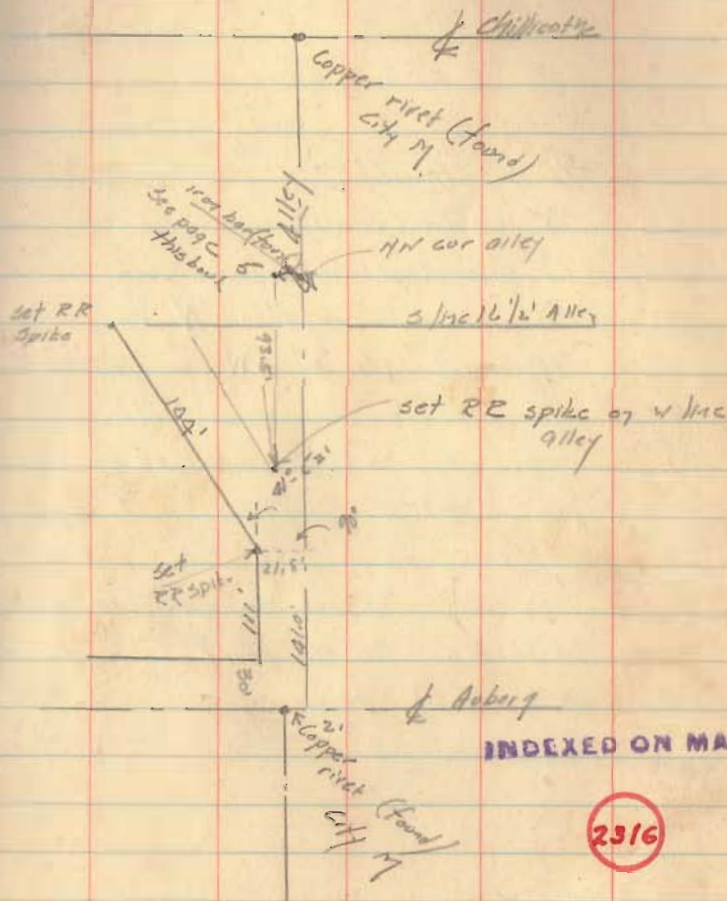 ℄ Chillicothe
Copper rivet (found)
City M
Alley
iron bar (found)
See page 6
this book
NW cor alley
set RR
Spike
S/line 16 1/2' Alley
93.5'
144'
set RR spike on w line
alley
21.5'
set
RR spike
111
141.0'
30'
℄ Auberg
2'
Copper
rivet (found)
City M
INDEXED ON MA
2316